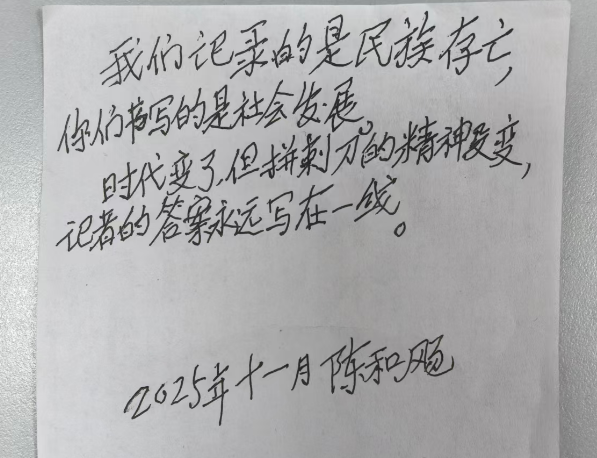 我们记录的是民族存亡，
你们书写的是社会发展。
时代变了，但拼刺刀的精神没变，
记者的答案永远写在一线。
2025年十一月 陈和旸